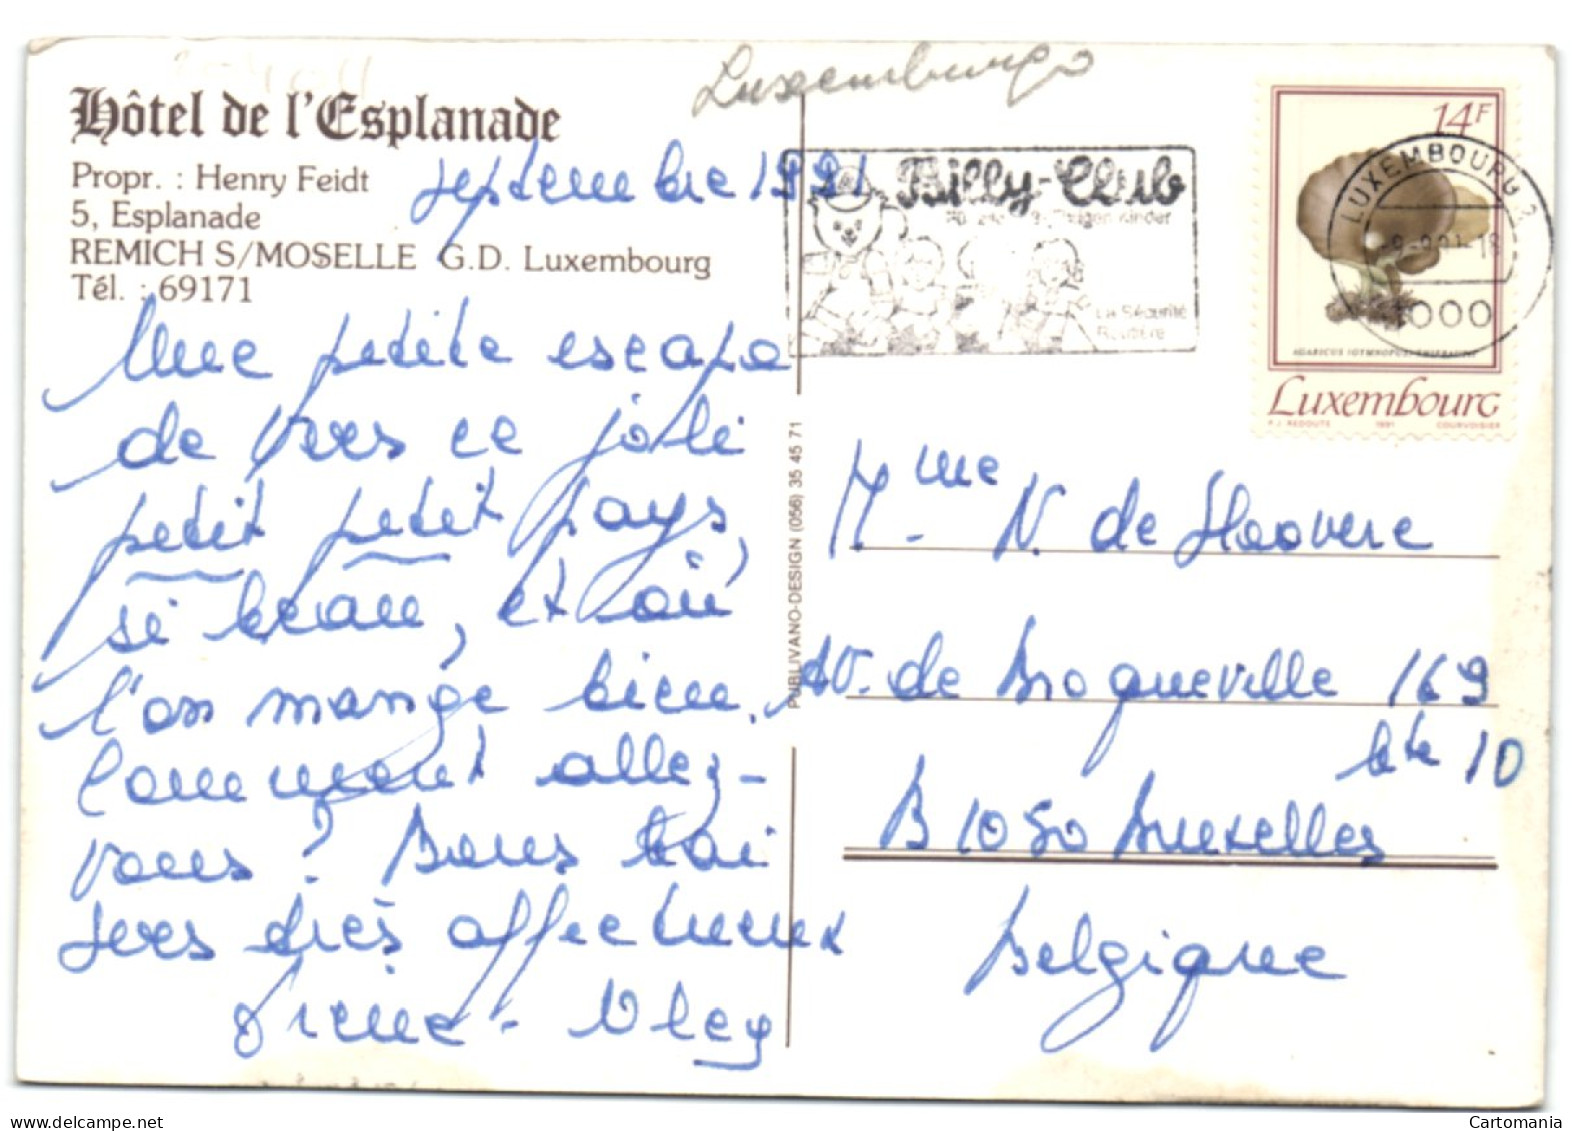 Luxemburgo
Hôtel de l'Esplanade
Propr. : Henry Feidt
5, Esplanade
REMICH S/MOSELLE G.D. Luxembourg
Tél. : 69171
septembre 1991
Une petite escapa
de vers ce joli
petit petit pays,
si beau, et où
l'on mange bien.
Comment allez-
vous? Bons bai
sers très affectueux
Billy-Club
La Sécurité
Routière
14F
LUXEMBOURG 2
1000
Luxembourg
P.J. REDOUTE 1991 COURVOISIER
PUBLIVANO-DESIGN (056) 35 45 71
Mme N. de Hoovere
Av. de Broqueville 169
bte 10
B 1050 Bruxelles
Belgique
Cartomania